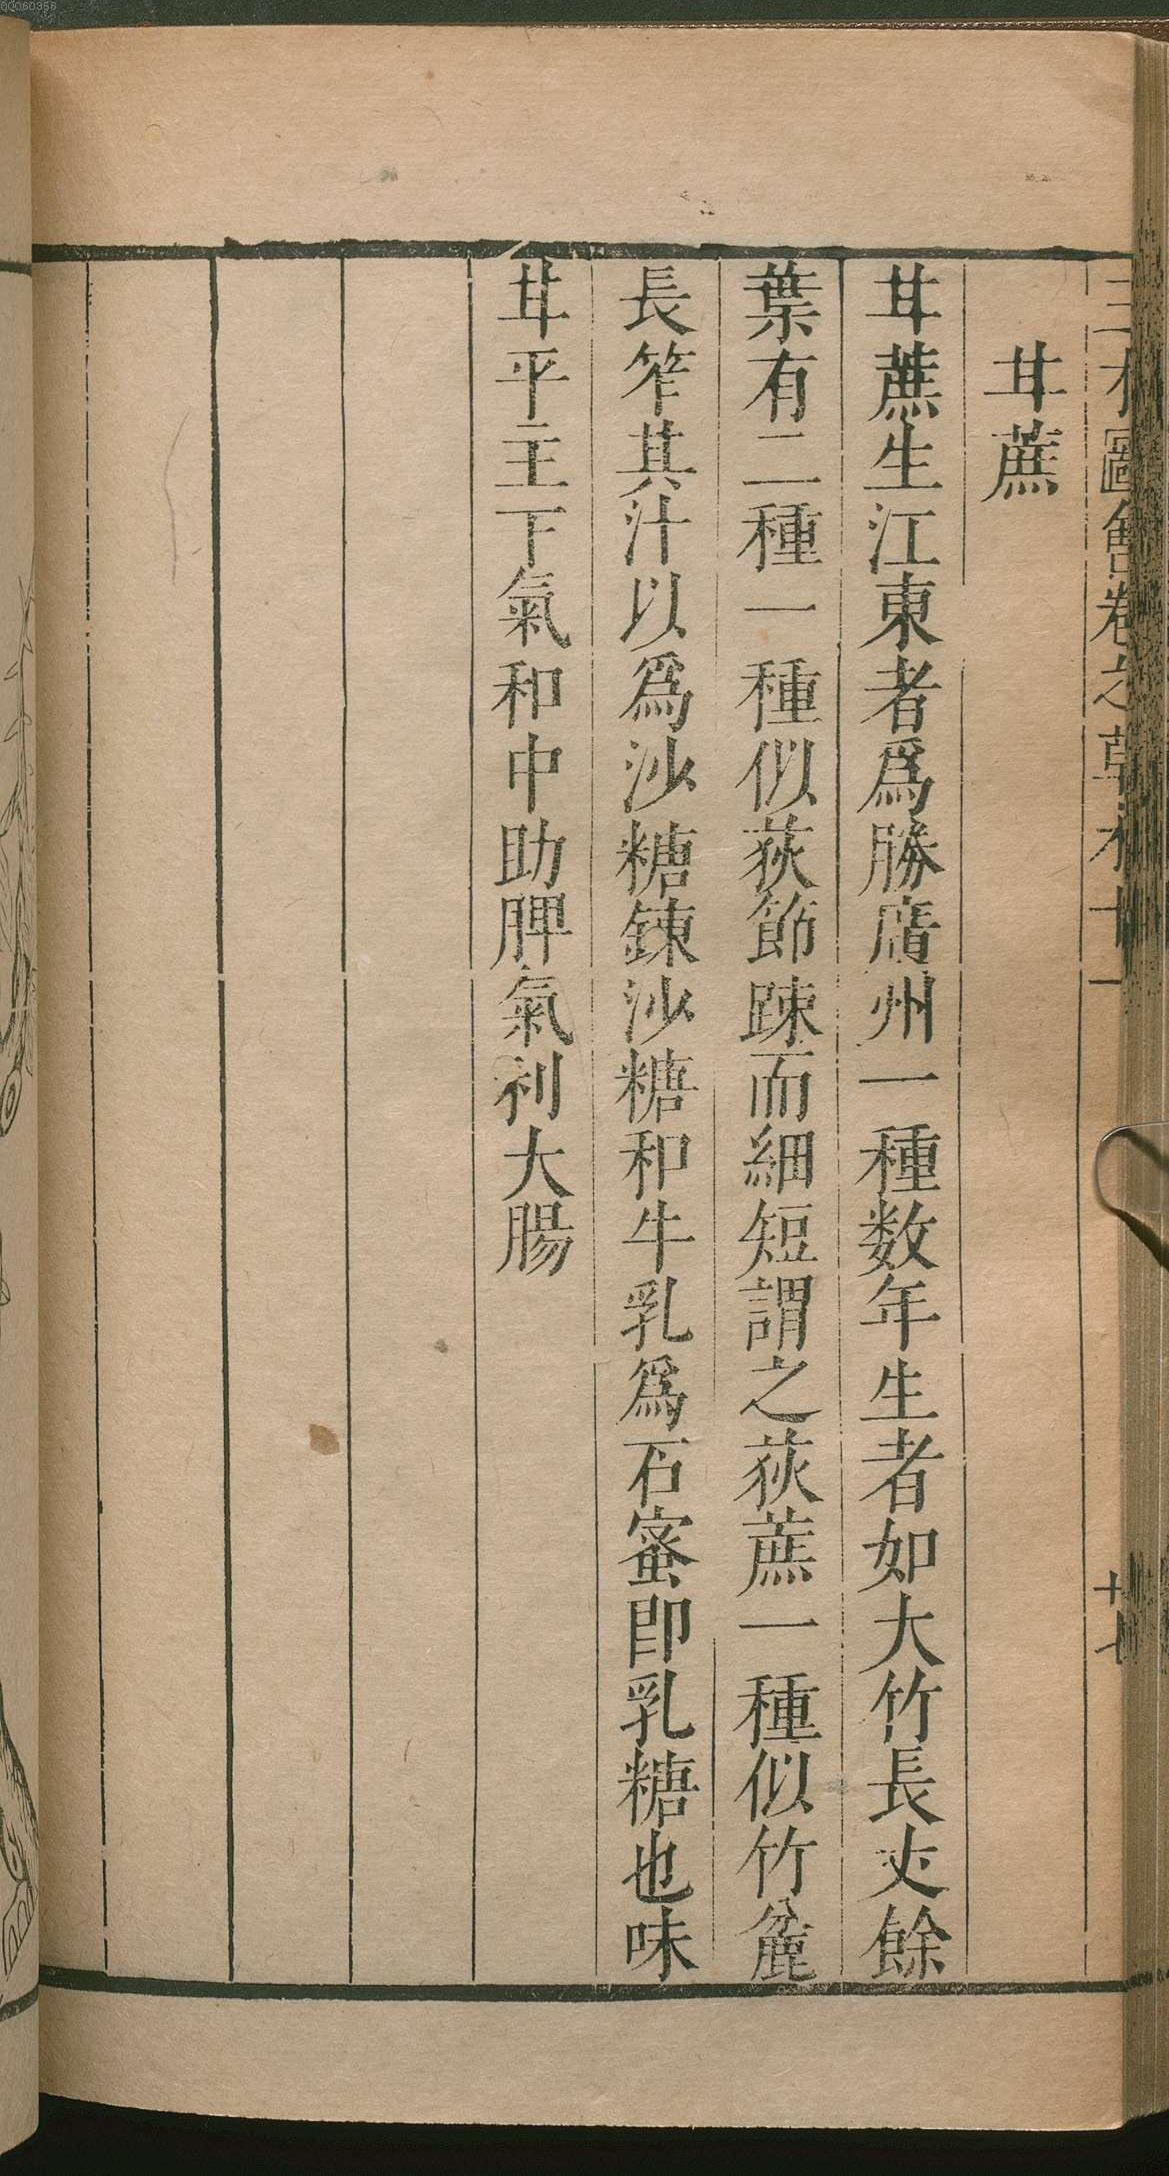 三才圖會卷之草木十一
十七
甘蔗
甘蔗生江東者爲勝廬州一種数年生者如大竹長丈餘
葉有二種一種似荻節踈而細短謂之荻蔗一種似竹麄
長笮其汁以爲沙糖鍊沙糖和牛乳爲石蜜卽乳糖也味
甘平主下氣和中助脾氣利大腸
00060356